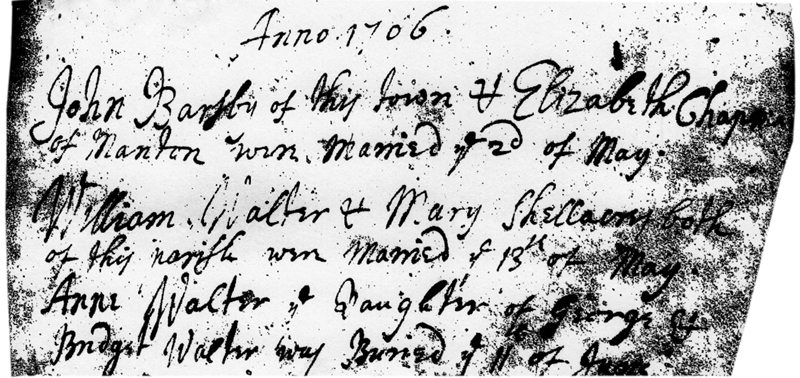 Anno 1706
John Barsby of this town & Elizabeth
of Manton were Married ye 2d of May.
William Walter & Mary both
of this parish were Married ye 13th of May.
Anne Walter ye Daughter of George &
Bridget Walter was Buried ye 11 of June